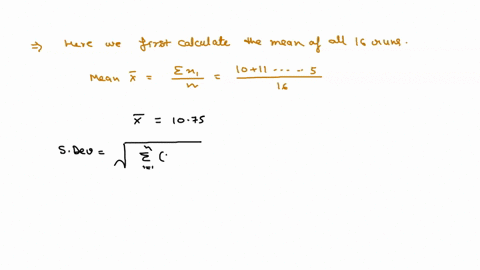 ⇒ Here we first calculate the mean of all 16 runs.
Mean x̄ = Σx₁/n = 10+11 ..... 5/16
x̄ = 10.75
S.Dev = √ Σⁿᵢ₌₁ (.